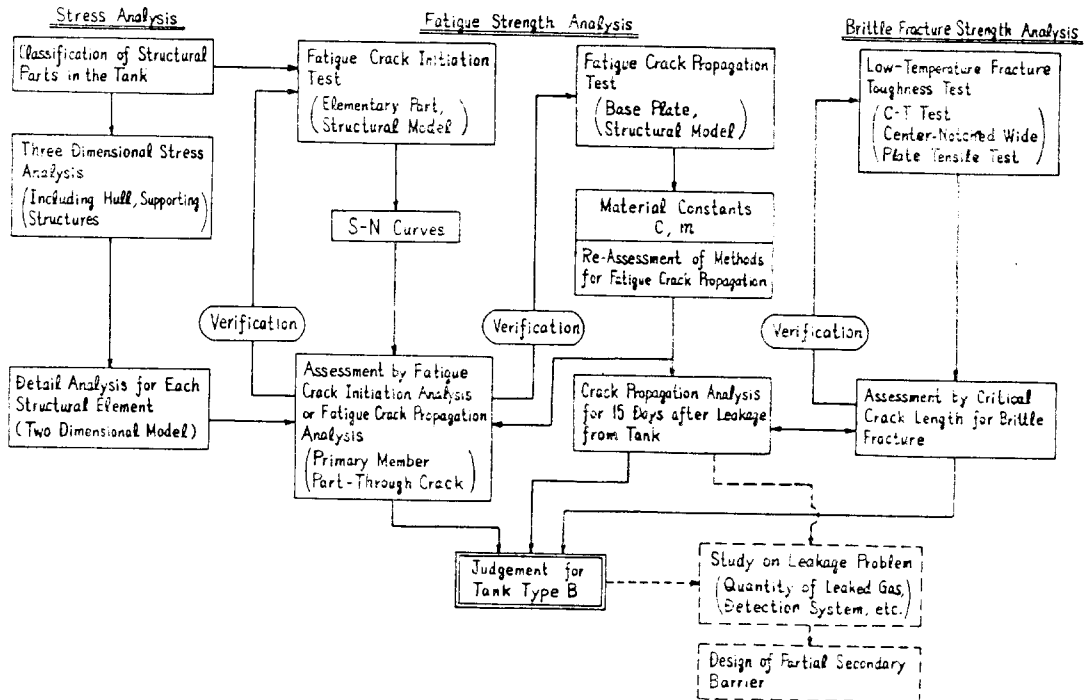 Stress Analysis
Classification of Structural
Parts in the Tank
Three Dimensional Stress
Analysis
(Including Hull, Supporting
Structures)
Detail Analysis for Each
Structural Element
(Two Dimensional Model)
Fatigue Strength Analysis
Fatigue Crack Initiation
Test
(Elementary Part,
Structural Model)
S-N Curves
Verification
Assessment by Fatigue
Crack Initiation Analysis
or Fatigue Crack Propagation
Analysis
(Primary Member
Part-Through Crack)
Fatigue Crack Propagation
Test
(Base Plate,
Structural Model)
Material Constants
C, m
Re-Assessment of Methods
for Fatigue Crack Propagation
Verification
Crack Propagation Analysis
for 15 Days after Leakage
from Tank
Brittle Fracture Strength Analysis
Low-Temperature Fracture
Toughness Test
(C-T Test
Center-Notched Wide
Plate Tensile Test)
Verification
Assessment by Critical
Crack Length for Brittle
Fracture
Judgement for
Tank Type B
Study on Leakage Problem
(Quantity of Leaked Gas,
Detection System, etc.)
Design of Partial Secondary
Barrier